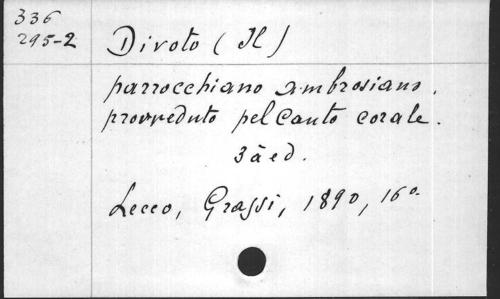 336
295-2
Divoto (Il)
parrocchiano ambrosiano.
provveduto pel Canto corale.
3a ed.
Lecco, Grassi, 1890, 16°